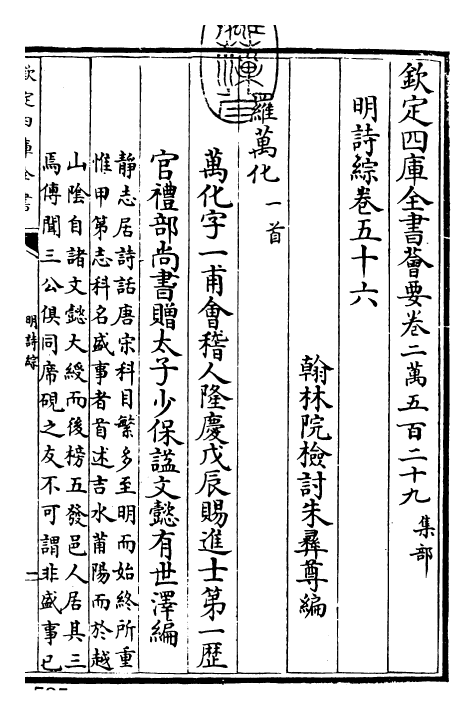 欽定四庫全書薈要卷二萬五百二十九 集部
明詩綜卷五十六
翰林院檢討朱彞尊編
羅萬化 一首
萬化字一甫會稽人隆慶戊辰賜進士第一歷
官禮部尚書贈太子少保諡文懿有世澤編
靜志居詩話唐宗科目繁多至明而始終所重
惟甲第志科名盛事者首述吉水莆陽而於越
山陰自諸文懿大綬而後榜五發邑人居其三
焉傳聞三公俱同席硯之友不可謂非盛事已
欽定四庫全書
明詩綜
一